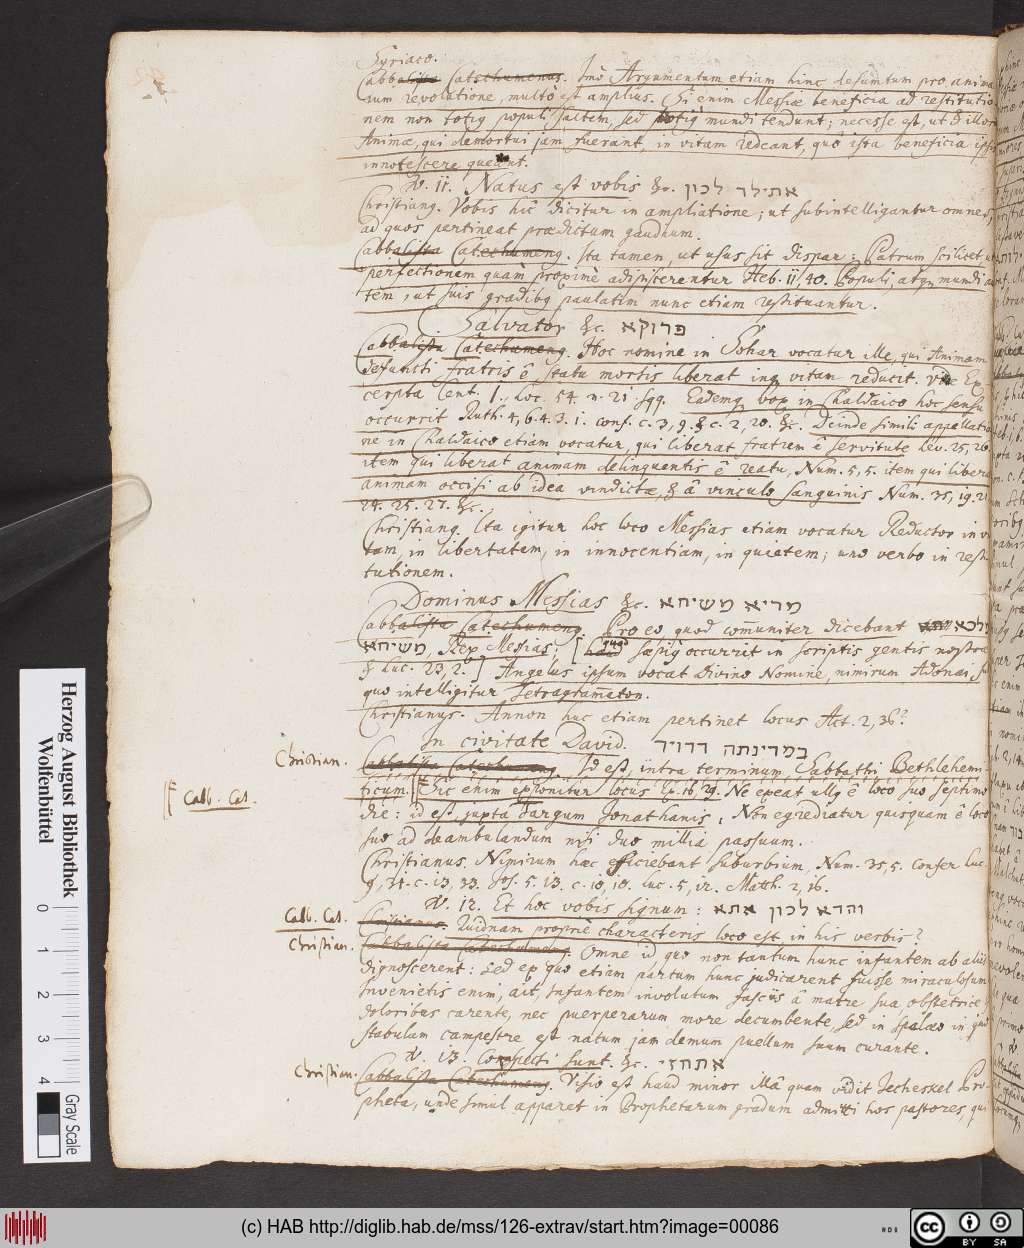 Syriaco.
Cabbalista Catechumenus. Imò Argumentum etiam hinc desumtum pro anima
rum revolutione, multò est amplius. Si enim Messiæ beneficia ad restitutio
nem non totiq populi saltem, sed totiq mundi tendunt; necesse est, ut & illor
Animæ, qui demortui jam fuerant, in vitam redeant, quò ista beneficia ipsis
innotescere queant.
V. 11. Natus est vobis &c. אתילד לכון
Christianq. Vobis hîc dicitur in ampliatione; ut subintelligantur omnes,
ad quos pertineat prædictum gaudium.
Cabbalista Catechumenq. Ita tamen, ut usus sit dispar: Patrum scilicet ut
perfectionem quàm proximè adipiscerentur Heb. 11, 40. Populi, atq mundi au
tem, ut suis gradibq paulatim nunc etiam restituantur.
Salvator &c. פרוקא
Cabbalista Catechumenq. Hoc nomine in Sohar vocatur ille, qui Animam
defuncti fratris è statu mortis liberat inq vitam reducit. Vide Ex
cerpta Cent. 1. loc. 54. n. 21 sqq. Eademq vox in Chaldaico hoc sensu
occurrit Ruth. 4, 6. 4. 3. 1. conf. c. 3, 9. & c. 2, 20. &c. Deinde simili appellatio
ne in Chaldaico etiam vocatur, qui liberat fratrem è servitute Lev. 25, 26
item qui liberat animam delinquentis è reatu, Num. 5, 5. item qui liberat
animam occisi ab idea vindictæ, & â vinculo sanguinis Num. 35, 19. 21
24. 25. 27. &c.
Christianq. Ita igitur hoc loco Messias etiam vocatur Reductor in vi
tam, in libertatem, in innocentiam, in quietem; uno verbo in resti
tutionem.
Dominus Messias &c. מריא משיחא
Cabbalista Catechumenq. Pro eo quod com̃uniter dicebant מלכא
משיחא, Rex Messias; [quod sæpiq occurrit in scriptis gentis nostræ
& Luc. 23, 2.] Angelus ipsum vocat divino Nomine, nimirum Adonai, su
quo intelligitur Tetragram̃aton.
Christianus. Annon huc etiam pertinet locus Act. 2, 36?
In civitate David. במדינתה דדויד
Christian. Cabbalista Catechumenq. Id est, intra terminum Sabbathi Bethlehemi
Cabb. Cat. ticum. Sic enim exponitur locus Ex. 16, 29. Ne exeat ullq è loco suo septimo
die: id est juxta Targum Jonathanis; Non egrediatur quisquam è loco
suo ad deambulandum nisi duo millia passuum.
Christianus. Nimirum hæc efficiebant suburbium, Num. 35, 5. Confer Luc.
9, 31. c. 13, 33. Jos. 5. 13. c. 10, 10. Luc. 5, 12. Matth. 2, 16.
V. 12. Et hoc vobis signum: והדא לכון אתא
Cabb. Cat. Christianus. Quidnam propriè characteris loco est in his verbis?
Christian. Cabbalista Catechumenq. Omne id quo non tantum hunc infantem ab aliis
dignoscerent: sed ex quo etiam partum hunc judicarent fuisse miraculosum
Invenietis enim, ait, Infantem involutum fasciis â matre sua obstetrice,
doloribus carente, nec puerperarum more decumbente, sed in spelæo in quo
stabulum campestre est natum jam demum puellum suum curante.
V. 13. Conspecti sunt. &c. אתחזי
Christian. Cabbalista Catechumenq. Visio est haud minor illâ quam vidit Jecheskel Pro
pheta, unde simul apparet in Prophetarum gradum admitti hos pastores, qui
Herzog August Bibliothek
Wolfenbüttel
0 1 2 3 4
Gray Scale
(c) HAB http://diglib.hab.de/mss/126-extrav/start.htm?image=00086
cc BY SA